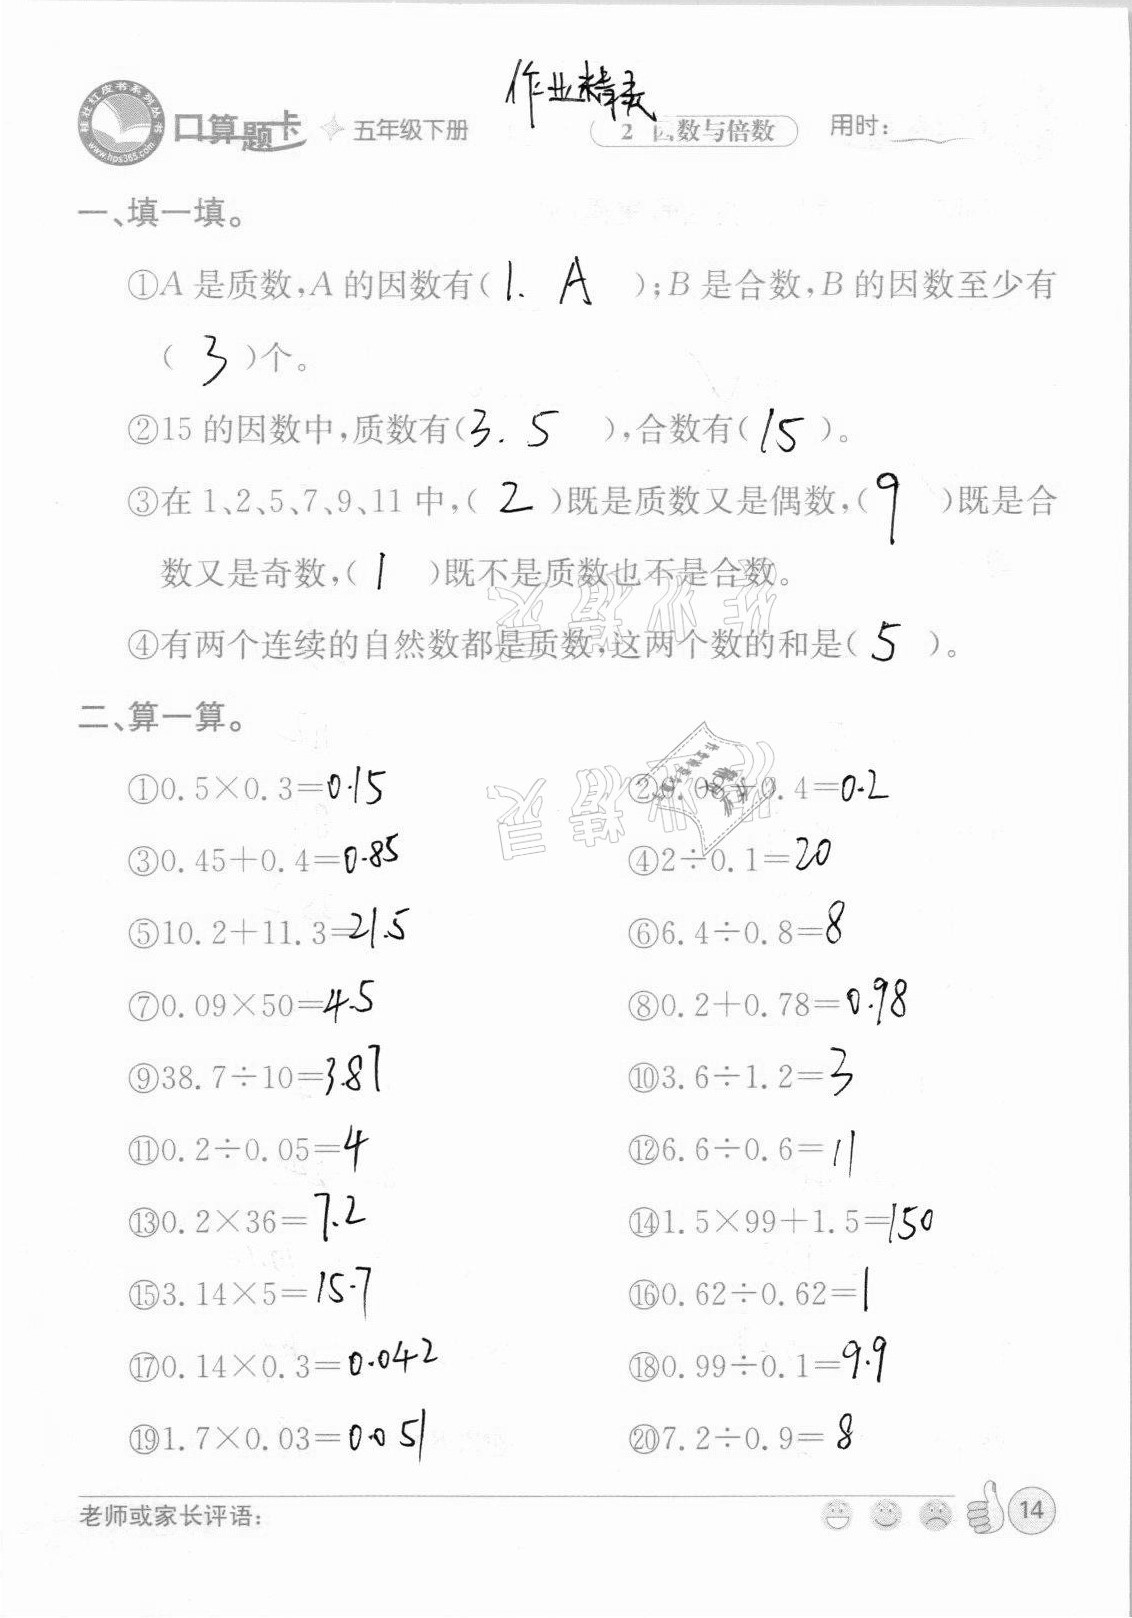 作业精灵
桂社红皮书系列丛书
www.hps365.com
口算题卡 五年级下册 2 因数与倍数 用时:
一、填一填。
①A是质数,A的因数有( 1. A );B是合数,B的因数至少有
( 3 )个。
②15的因数中,质数有(3. 5 ),合数有( 15 )。
③在1、2、5、7、9、11中,( 2 )既是质数又是偶数,( 9 )既是合
数又是奇数,( 1 )既不是质数也不是合数。
④有两个连续的自然数都是质数,这两个数的和是( 5 )。
二、算一算。
①0.5×0.3=0.15
②0.08÷0.4=0.2
③0.45+0.4=0.85
④2÷0.1=20
⑤10.2+11.3=21.5
⑥6.4÷0.8=8
⑦0.09×50=4.5
⑧0.2+0.78=0.98
⑨38.7÷10=3.87
⑩3.6÷1.2=3
⑪0.2÷0.05=4
⑫6.6÷0.6=11
⑬0.2×36=7.2
⑭1.5×99+1.5=150
⑮3.14×5=15.7
⑯0.62÷0.62=1
⑰0.14×0.3=0.042
⑱0.99÷0.1=9.9
⑲1.7×0.03=0.051
⑳7.2÷0.9=8
老师或家长评语:
14